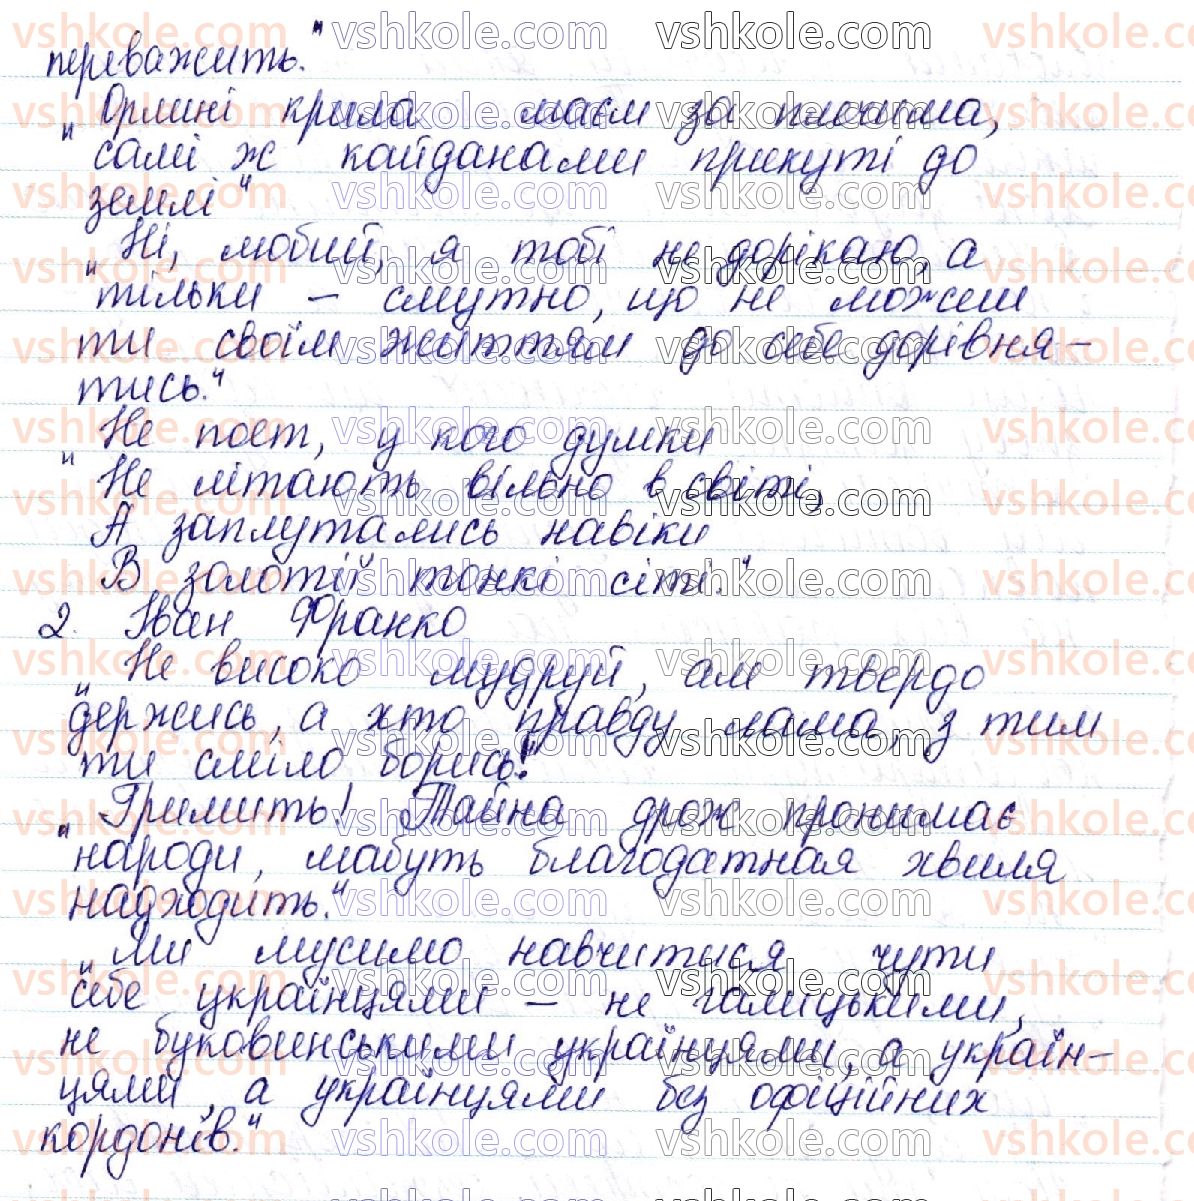 переважить."
„Орлині крила маєм за плечима,
самі ж кайданами прикуті до
землі"
„Ні, любий, я тобі не дорікаю, а
тільки – смутно, що не можеш
ти своїм життям до себе дорівня-
тись."
„Не поет, у кого думки
Не літають вільно в світі,
А заплутались навіки
В золотії тонкі сіті."
2. Іван Франко
„Не високо мудруй, але твердо
держись, а хто правду лама, з тим
ти сміло борись!"
„Гримить! Тайна дрож пронимає
народи, мабуть благодатная хвиля
надходить."
„Ми мусимо навчитися чути
себе українцями – не галицькими,
не буковинськими українцями, а україн-
цями, а українцями без офіційних
кордонів."